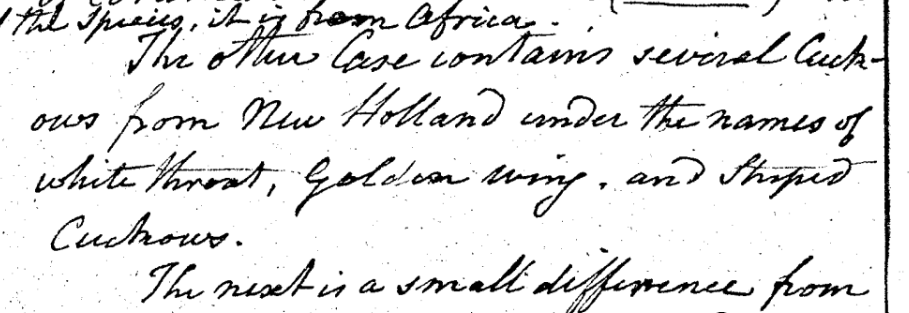 the Species, it is from Africa.
The other Case contains several Cuck-
ows from New Holland under the names of
white throat, Golden wing, and Striped
Cuckows.
The next is a small difference from